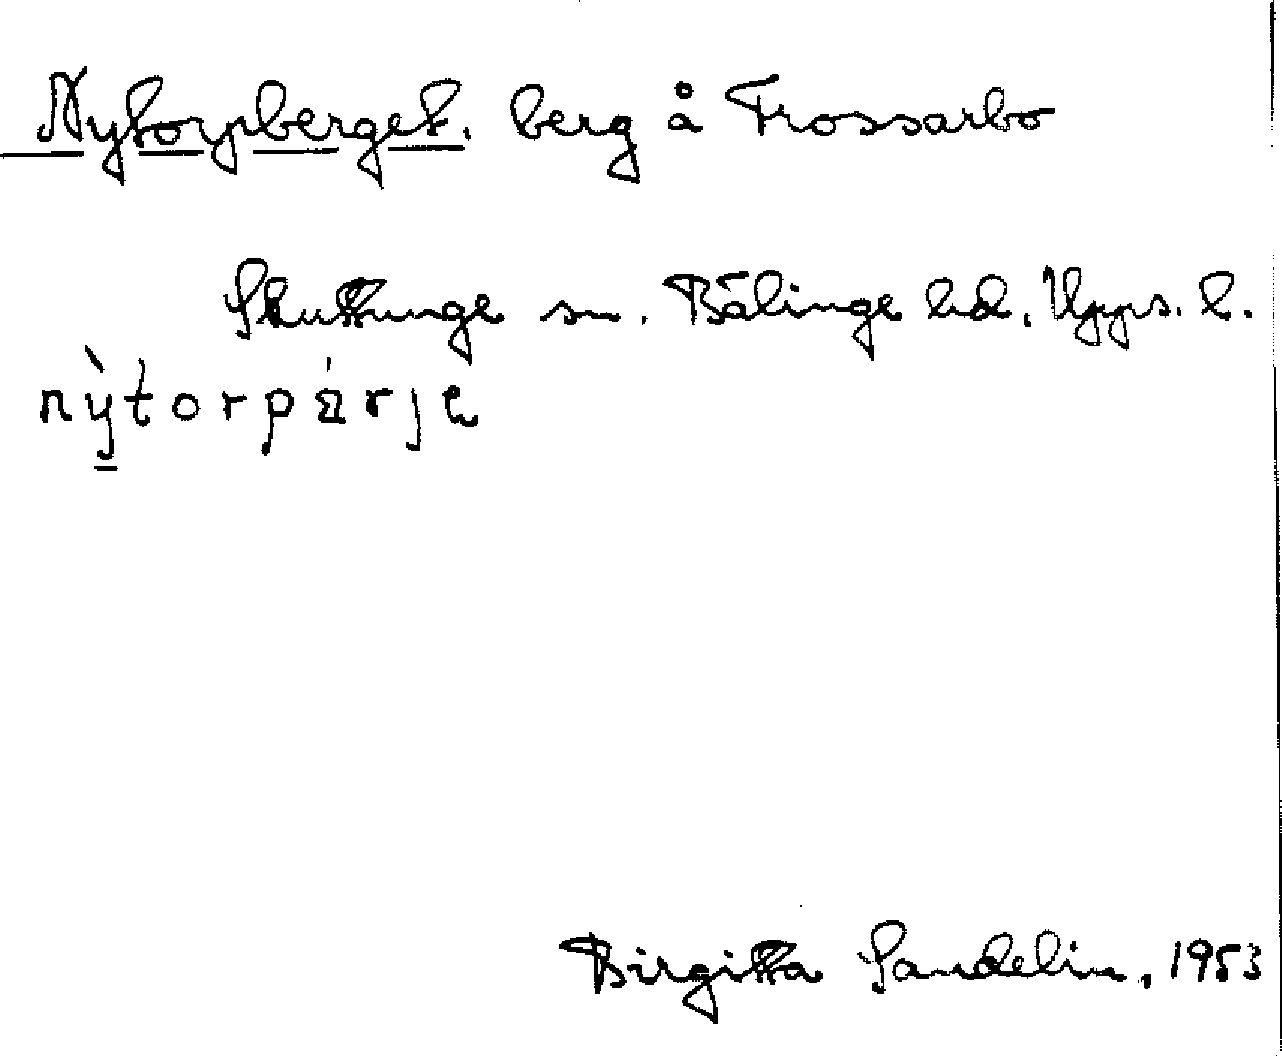 Nytorpberget. berg å Trossarbo
Skuttunge sn. Bälinge hd. Upps. l.
nỳtorpárjɐ
Birgitta Sandelin, 1953